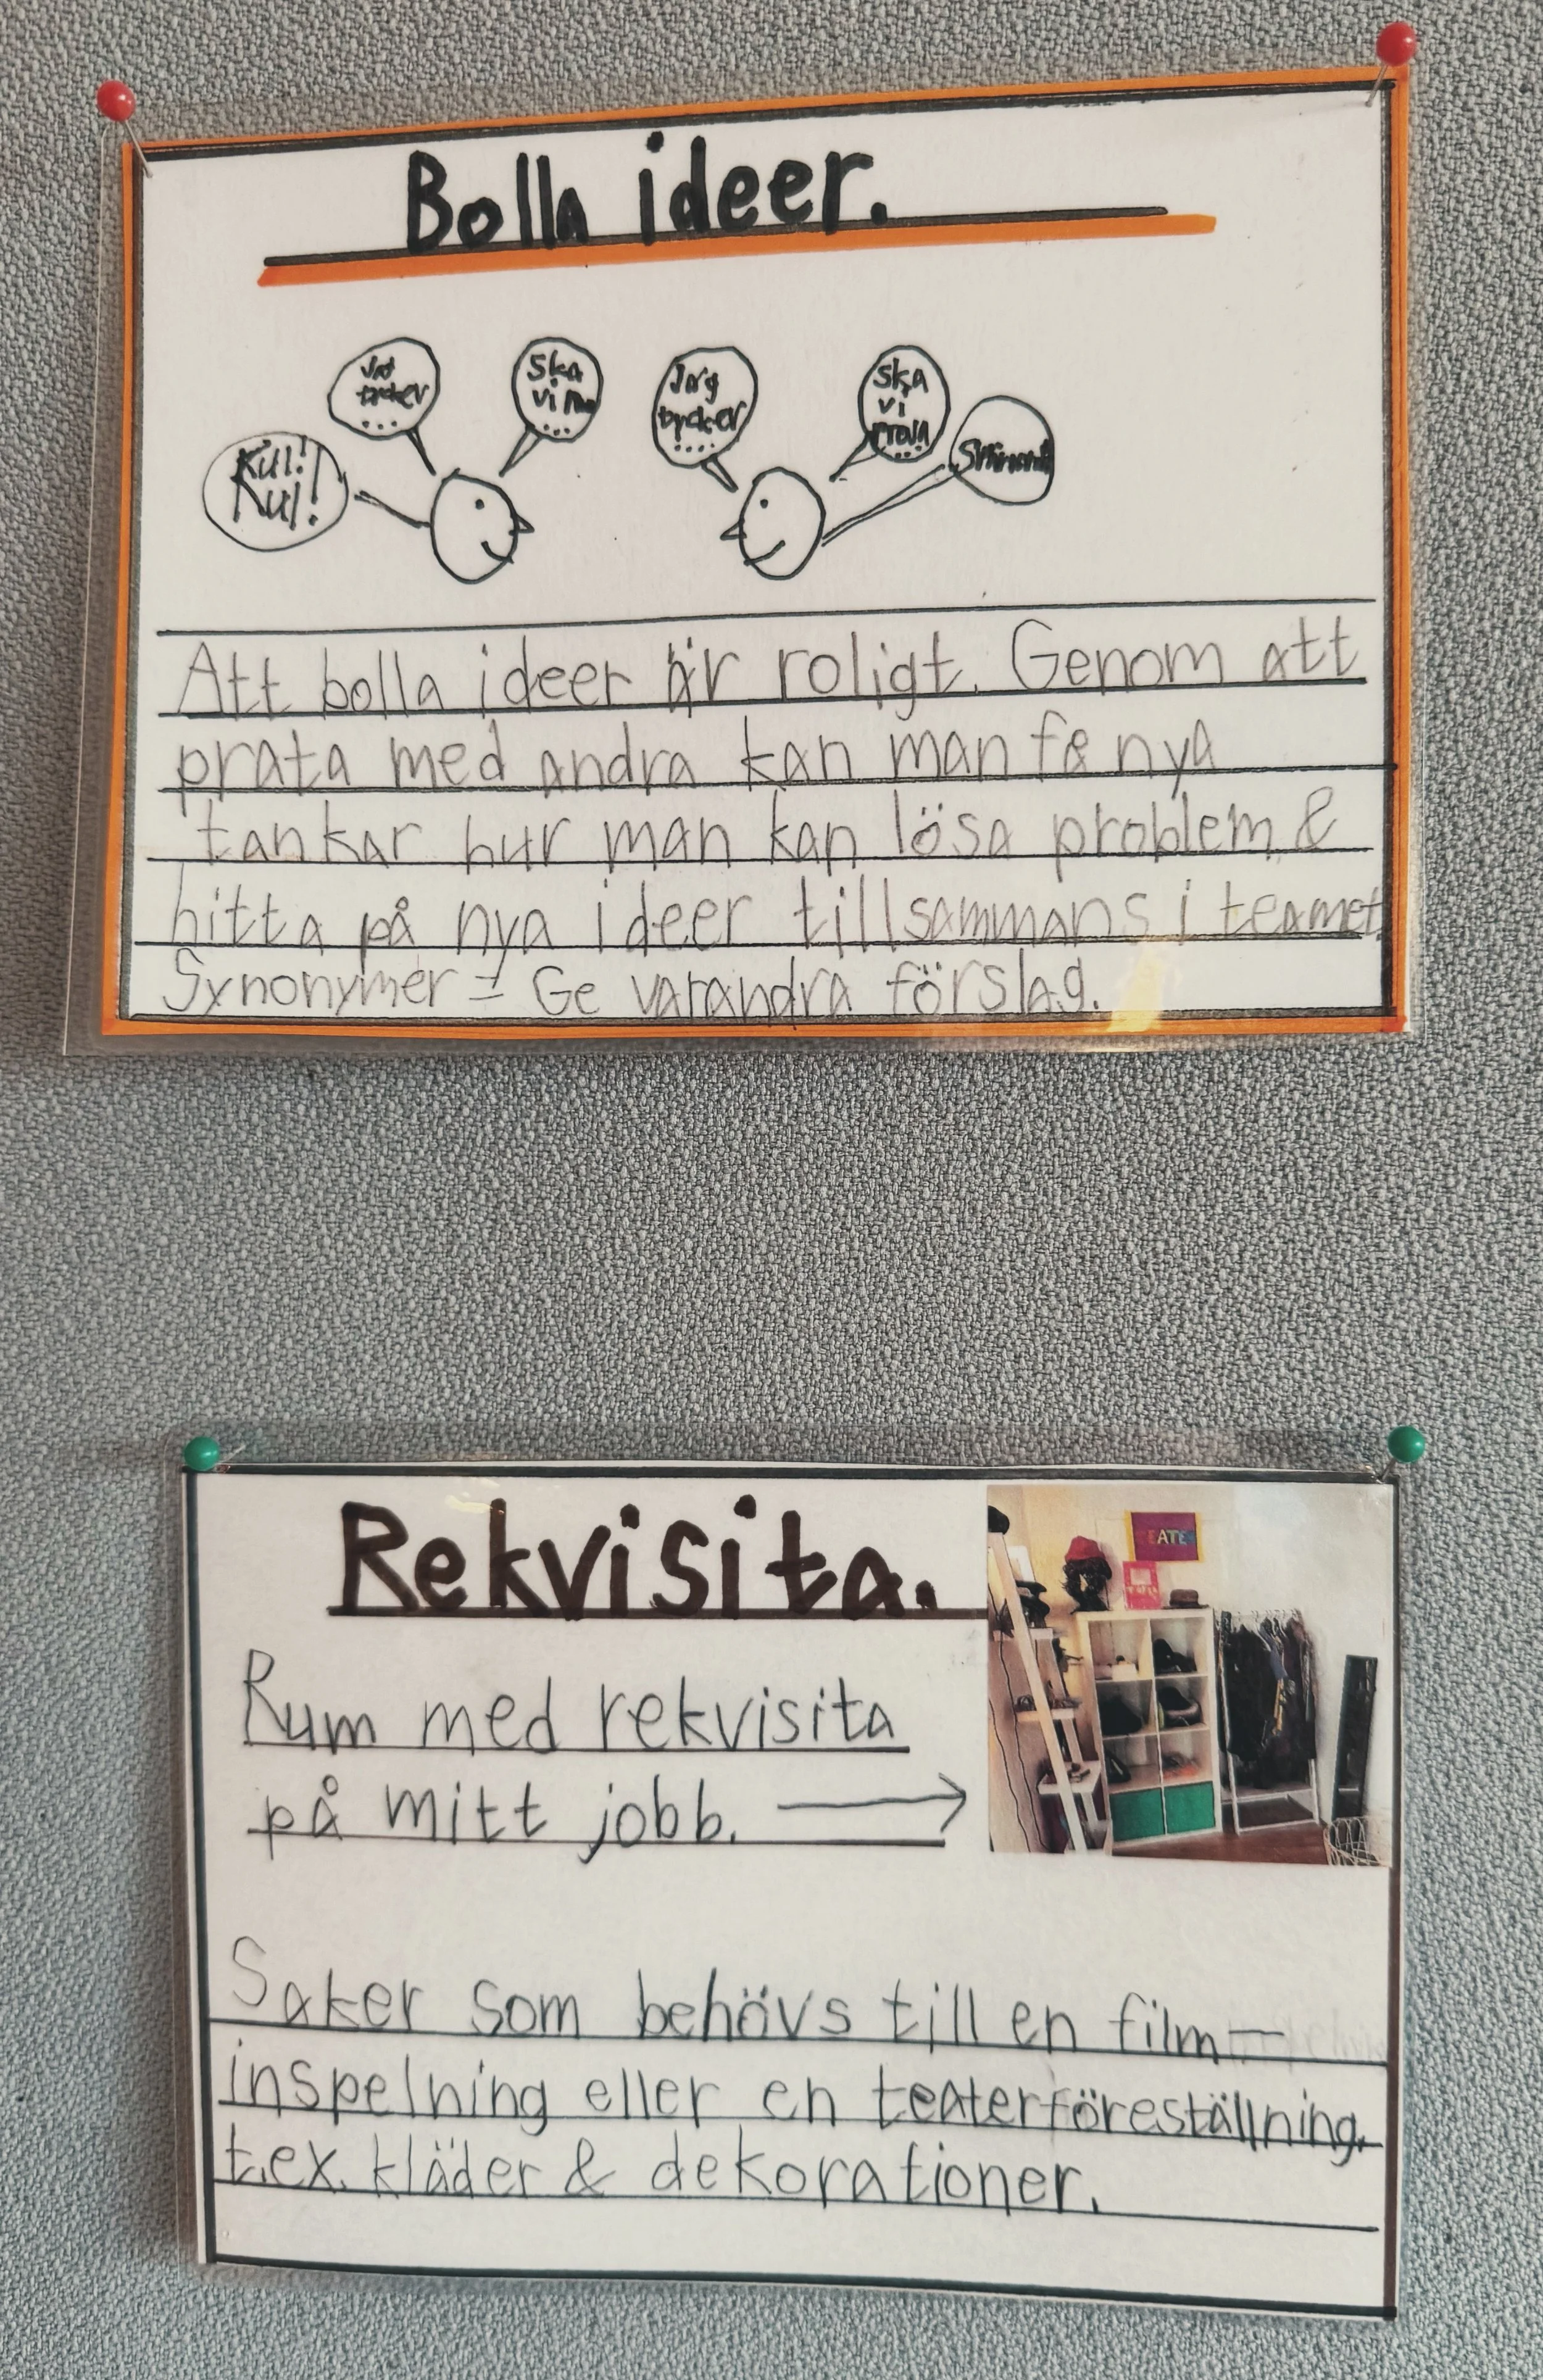 Bolla ideer.
Kul!
Kul!
tycker
...
Ska
vi
...
Jag
tycker
....
Ska
vi
prova
...
Att bolla ideer är roligt. Genom att
prata med andra kan man få nya
tankar hur man kan lösa problem &
hitta på nya ideer tillsammans i teamet.
Synonymer = Ge varandra förslag.
Rekvisita.
EATE
Rum med rekvisita
på mitt jobb. →
Saker som behövs till en film-
inspelning eller en teaterföreställning.
t.ex. kläder & dekorationer.